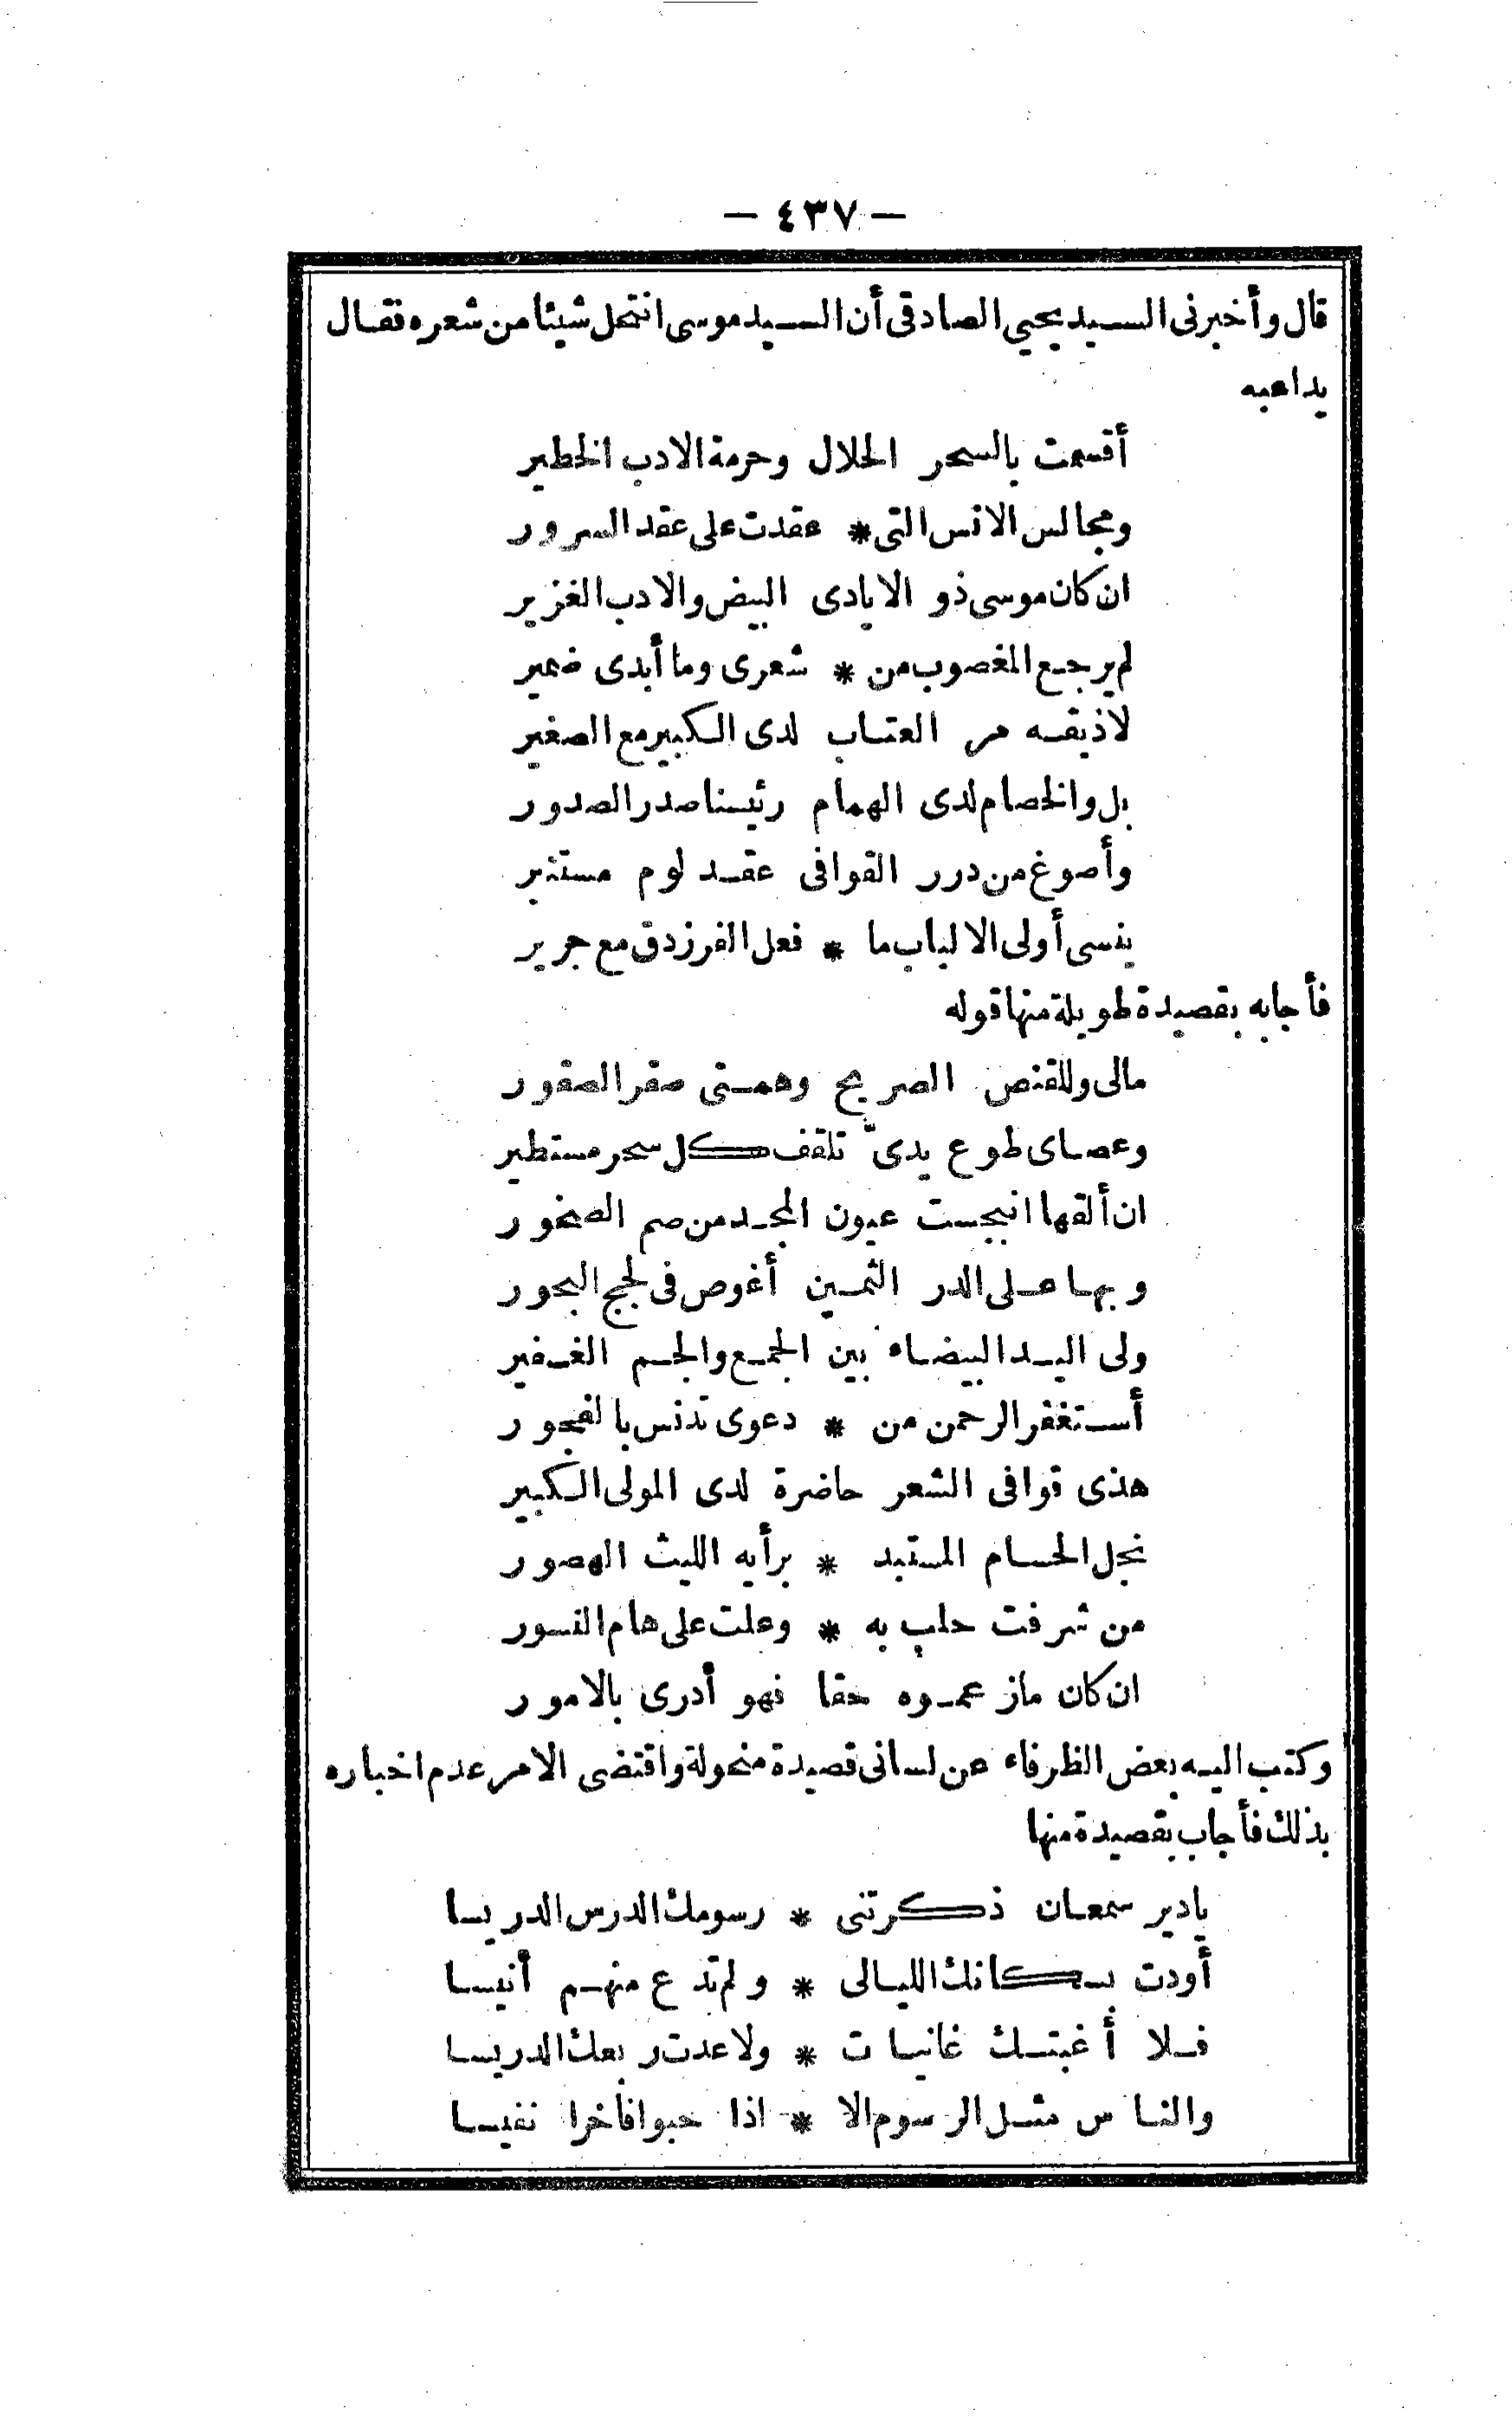 — ٤٣٧ —
قال وأخبرنى السيد يحيى الصادقى أن السيد موسى انتحل شيئا من شعره فقال
يداعبه
أقسمت بالسحر الحلال وحرمة الادب الخطير
ومجالس الانس التى * عقدت على عقد السرور
ان كان موسى ذو الايادى البيض والادب الغزير
لم يرجع المغصوب من * شعرى وما أبدى ضمير
لاذيقه مر العتاب لدى الكبير مع الصغير
بل والخصام لدى الهمام رئيسنا صدر الصدور
وأصوغ من درر القوافى عقد لوم مستنير
ينسى أولى الالباب ما * فعل الفرزدق مع جرير
فأجابه بقصيدة طويلة منها قوله
مالى وللقنص الصريح وهمتى صقر الصقور
وعصاى طوع يدىّ تلقف كل سحر مستطير
ان ألقها انبجست عيون المجد من صم الصخور
وبها على الدر الثمين أغوص فى لجج البحور
ولى اليد البيضاء بين الجمع والجم الغفير
أستغفر الرحمن من * دعوى تدنس بالفجور
هذى قوافى الشعر حاضرة لدى المولى الكبير
نجل الحسام المستبد * برأيه الليث الهصور
من شرفت حلب به * وعلت على هام النسور
ان كان مازعموه حقا فهو أدرى بالامور
وكتب اليه بعض الظرفاء عن لسانى قصيدة منحولة واقتضى الامر عدم اخباره
بذلك فأجاب بقصيدة منها
يادير سمعان ذكرتنى * رسومك الدرس الدريسا
أودت بسكانك الليالى * ولم تدع منهم أنيسا
فلا أغبتك غانيات * ولا عدت ربعك الدريسا
والناس مثل الرسوم الا * اذا حبوا فاخرا نفيسا